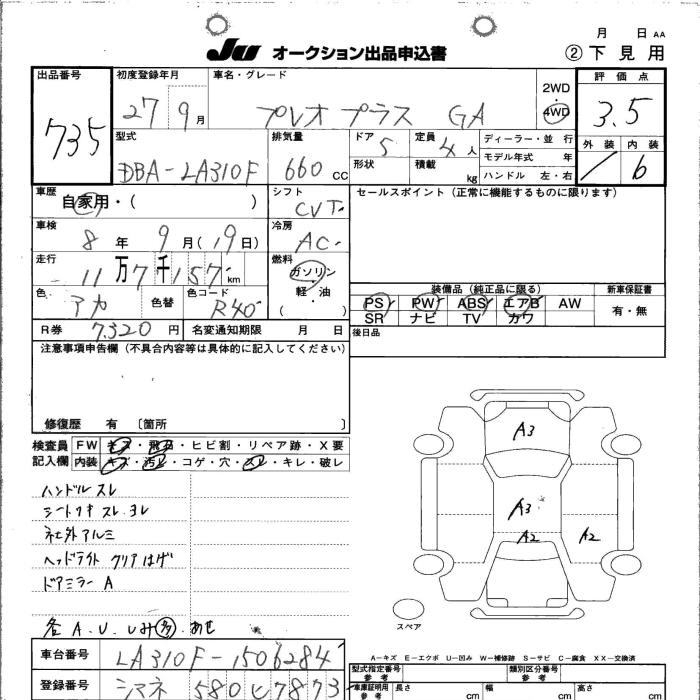 月 日 AA
JU オークション出品申込書 ② 下見用
出品番号 初度登録年月 車名・グレード 2WD・4WD 評価点
735 27 9月 プレオ プラス GA 3.5
型式 排気量 ドア 定員 ディーラー・並行 外装 内装
DBA-LA310F 660cc 5 4人 モデル年式 年 6
形状 積載 kg ハンドル 左・右
車歴 自家用・( ) シフト CVT セールスポイント (正常に機能するものに限ります)
車検 8年 9月(19日) 冷房 AC
走行 11万7千157km 燃料 ガソリン・軽油 ( )
装備品 (純正品に限る) 新車保証書
色 アカ 色替 色コード R40 PS PW ABS エアB AW 有・無
SR ナビ TV カワ
R券 7,320円 名変通知期限 月 日 後日品
注意事項申告欄 (不具合内容等は具体的に記入してください)
修復歴 有 〔箇所 〕
検査員記入欄 FW キズ・飛石・ヒビ割・リペア跡・X要
内装 キズ・汚レ・コゲ・穴・スレ・キレ・破レ
ハンドル スレ
シートワキ スレ ヨレ
社外アルミ
ヘッドライト クリアはげ
ドアミラー A
各 A.U.しみ多 あせ
A3
A3
A2 A2
スペア
A-キズ E-エクボ U-凹み W-補修跡 S-サビ C-腐食 XX-交換済
車台番号 LA310F-1506284 型式指定番号 参考 類別区分番号 参考
登録番号 シマネ 580 ヒ7873 車庫証明用 参考 長さ cm 幅 cm 高さ cm